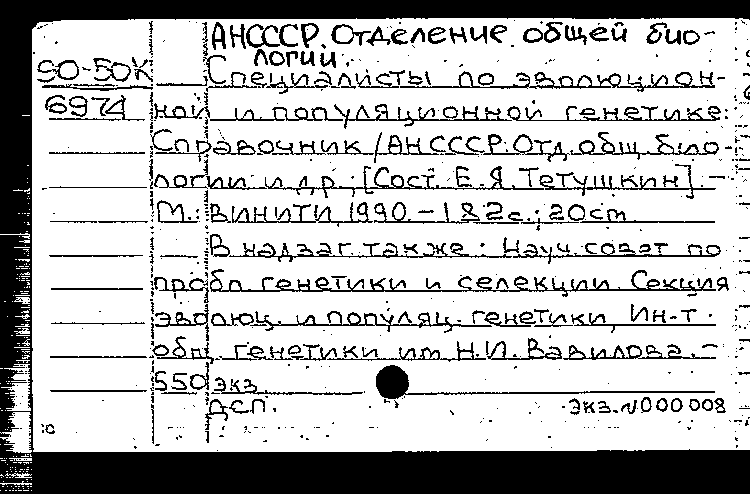 АН СССР. Отделение общей био-
логии.
SO-50К Специалисты по эволюцион-
6974 ной и популяционной генетике:
Справочник / АН СССР. Отд. общ. био-
логии и др.; [Сост. Е. Я. Тетушкин]. -
М.: ВИНИТИ, 1990. - 182с.; 20cm
В надзаг. также: Науч. совет по
пробл. генетики и селекции. Секция
эволюц. и популяц. генетики, Ин-т
общ. генетики им. Н.И. Вавилова. -
550 экз.
ДСП. Экз. N000008